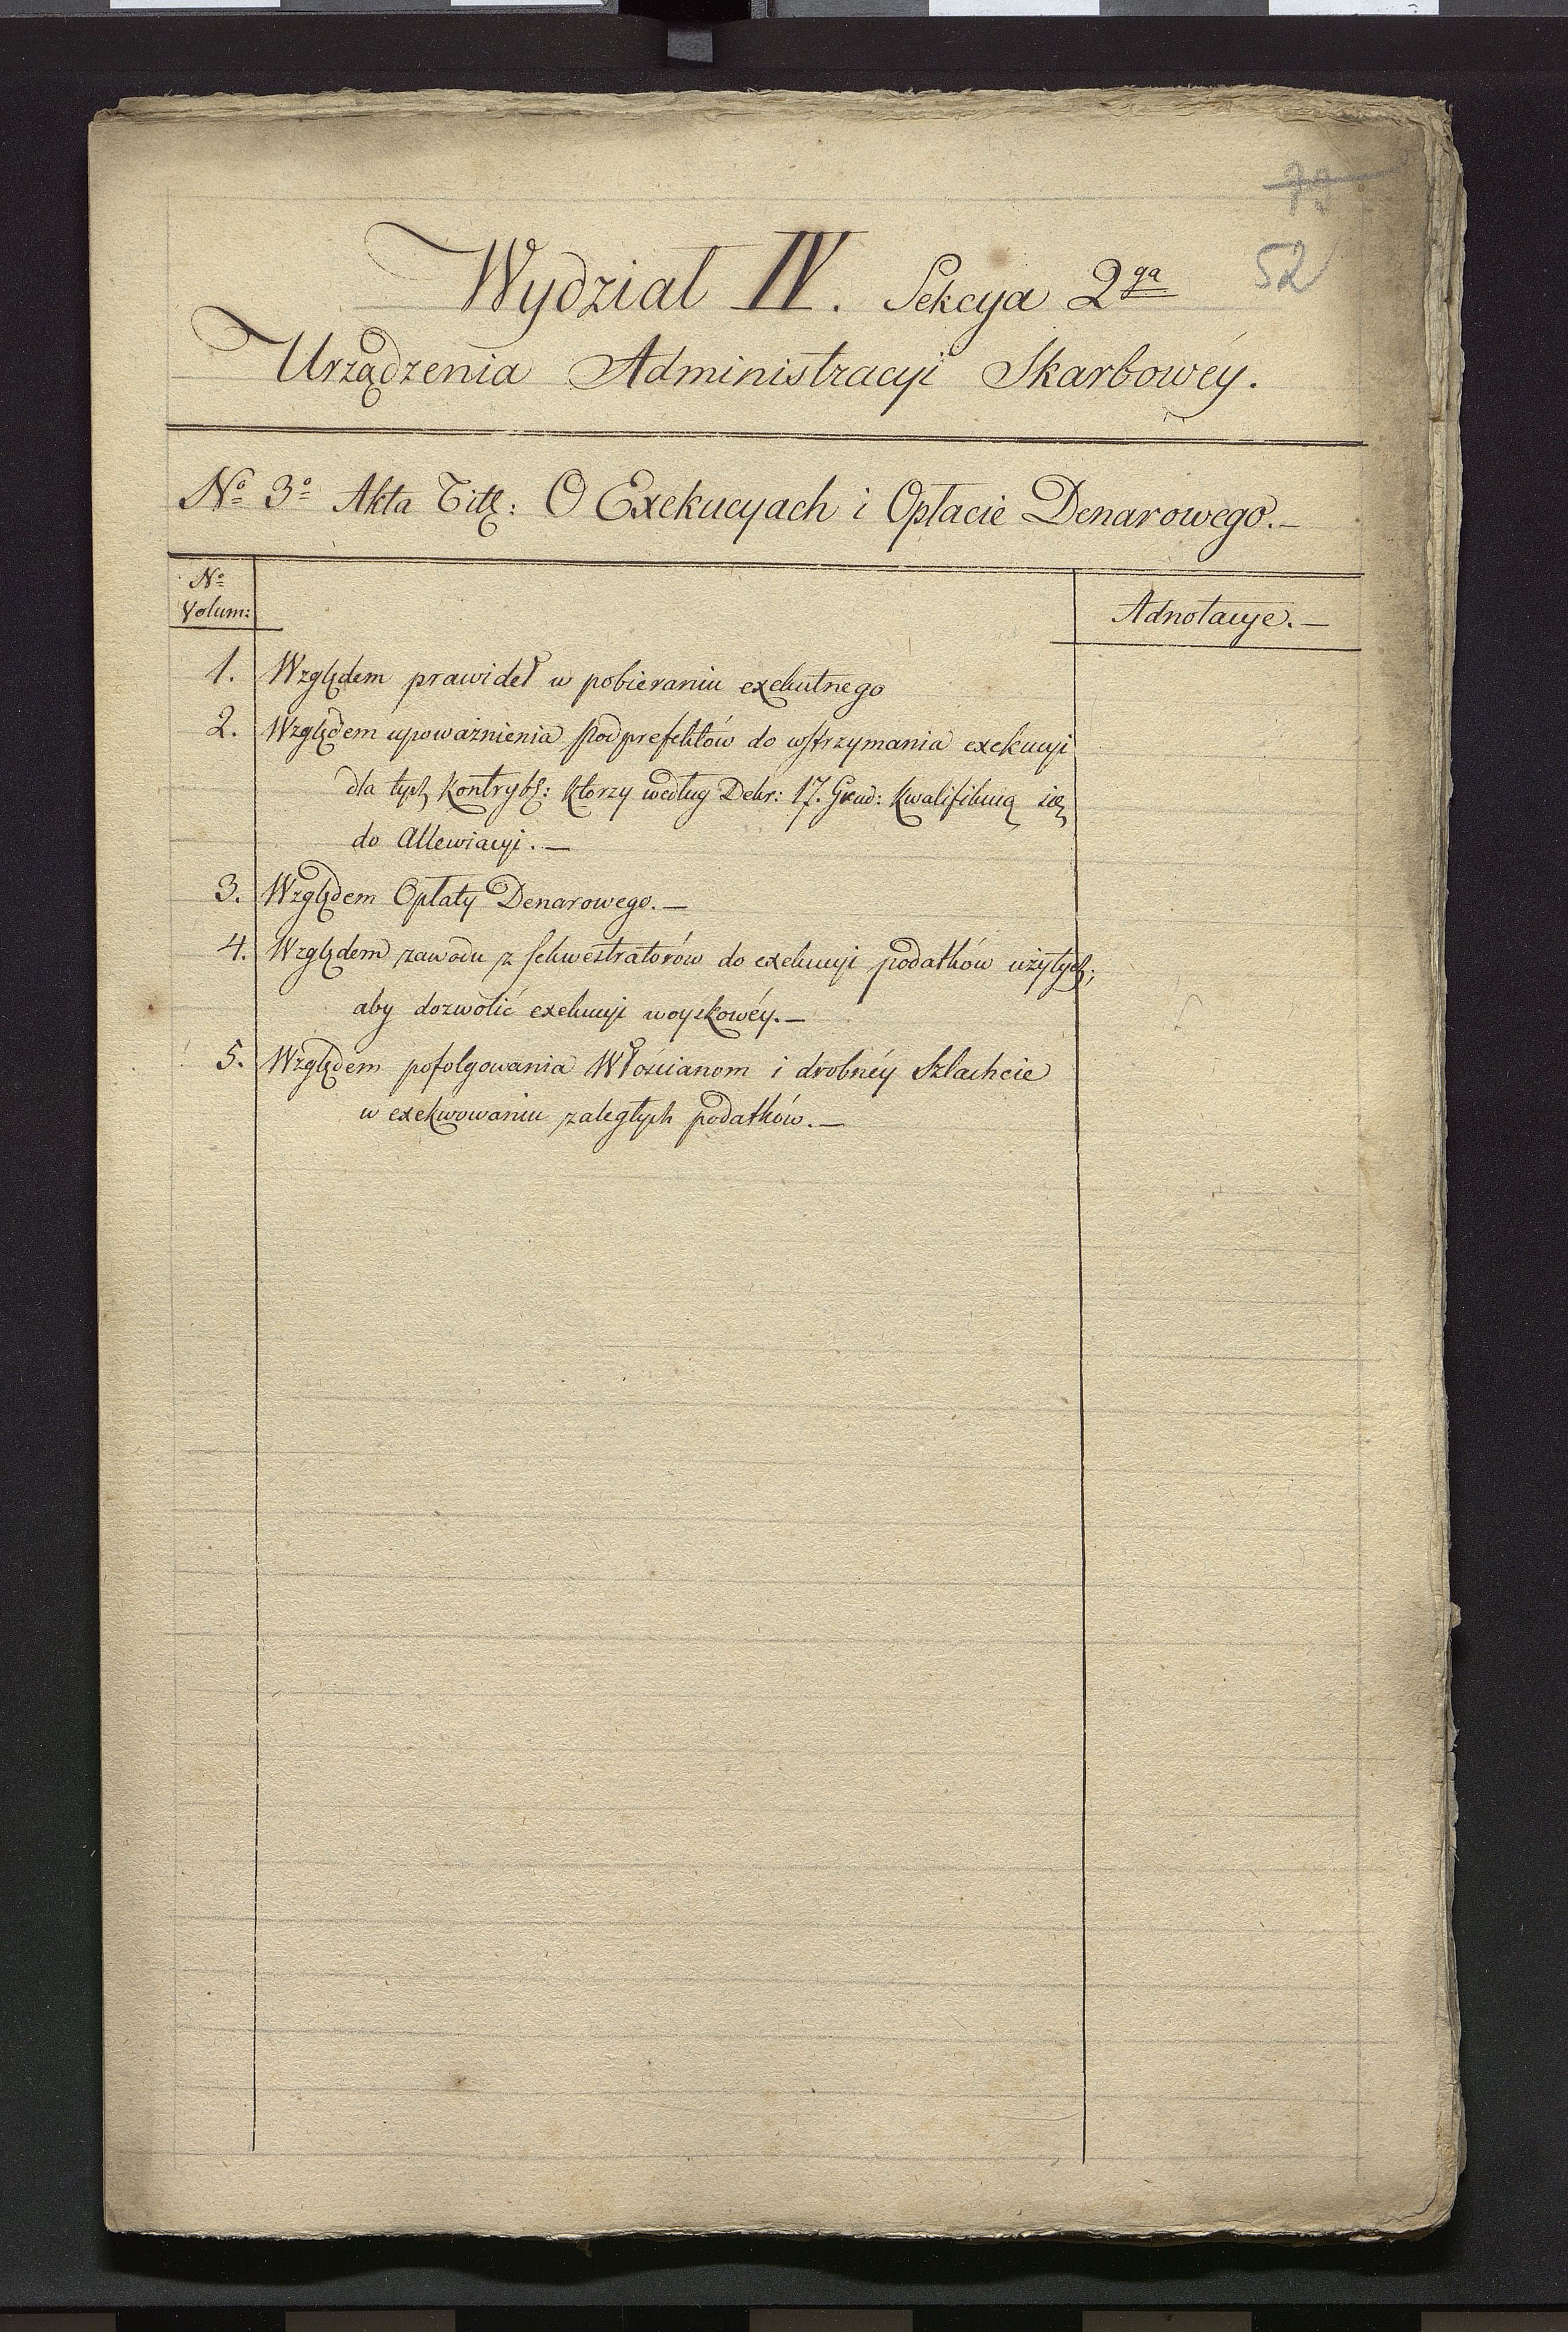 73
52
Wydział IV. Sekcya 2ga
Urządzenia Administracyi Skarbowéy.
No 3o Akta Titt: O Exekucyach i Opłacie Denarowego.—
No
Volum:
Adnotacye.—
1. Względem prawideł w pobieraniu exekutnego
2. Względem upoważnienia Podprefektów do wstrzymania exekucyi
dla tych Kontryb: ktorzy według Dekr: 17. Grud: kwalifikuią się
do Allewiacyi.—
3. Względem Opłaty Denarowego.—
4. Względem zawodu z sekwestratorów do exekucyi podatków użytych;
aby dozwolić exekucyi woyskowéy.—
5. Względem pofolgowania Włościanom i drobnéy Szlachcie
w exekwowaniu zaległych podatków.—